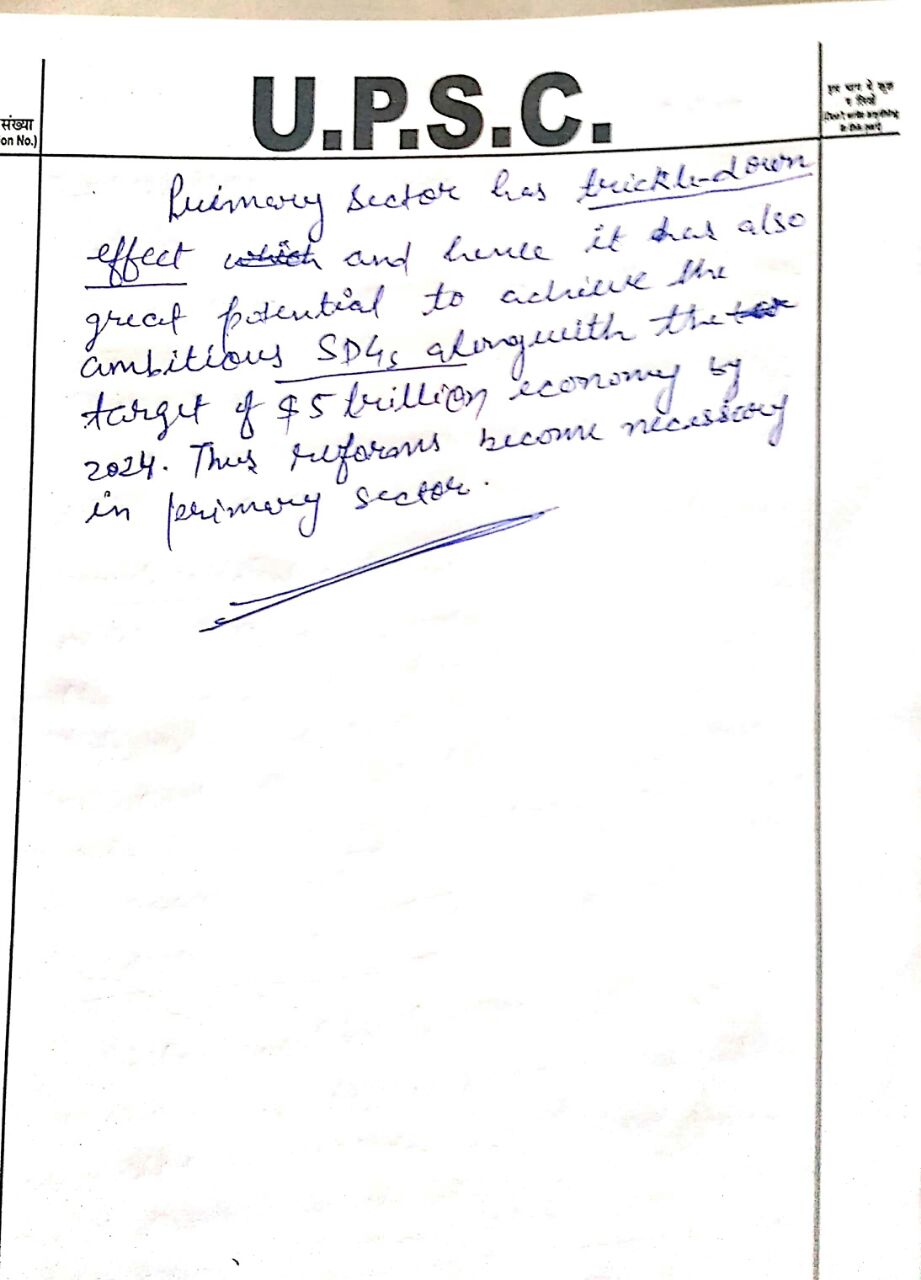 U.P.S.C.
संख्या
on No.)
इस भाग में कुछ
न लिखें
(Don't write anything
in this part)
Primary sector has trickle-down
effect which and hence it has also
great potential to achieve the
ambitious SDGs alongwith the
target of $5 trillion economy by
2024. Thus reforms become necessary
in primary sector.